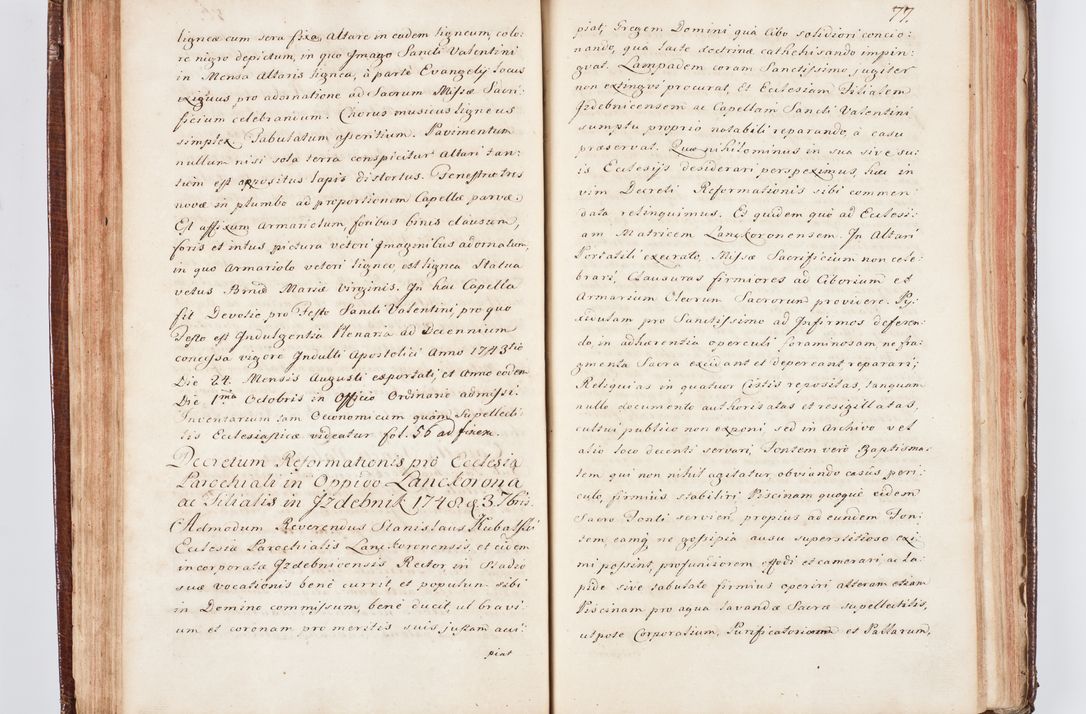 ligneæ cum sera fixa, altare in eadem ligneum, colo:
re nigro depictum, in quo Imago Sancti Valentini
in Mensa Altaris lignea, à parte Evangelij locus
exiguus, pro adornatione ad Sacrum Missæ Sacri:
ficium celebrandum. Chorus musicus ligneus
simplex. Tabulatum asseritium. Pavimentum
nullum nisi sola terra conspicitur Altari tan:
tùm est appositus lapis distortus. Fenestræ tres
novæ in plumbo ad proportionem Capellæ parvæ.
Est affixum armariolum, foribus binis clausum,
foris et intus pictura veteri Imaginibus adornatum,
in quo Armariolo veteri ligneo, est lignea Statua
vetus Bmæ Mariæ Virginis. In hac Capella
fit Devotio pro Festo Sancti Valentini, pro quo
Festo est Indulgentia Plenaria ad Decennium
concessa vigore Indulti Apostolici Anno 1743tio
Die 24. Mensis Augusti exportati, et Anno eodem
Die 1ma Octobris in Officio Ordinario admissi.
Inventarium tam Œconomicum quàm Supellecti:
lis Ecclesiasticæ videatur fol. 56 ad finem.
Decretum Reformationis pro Ecclesia
Parochiali in Oppido Lanckorona
ac Filialis in Jzdebnik 1748 d. 3. 7bris.
Admodum Reverendus Stanislaus Kubalski
Ecclesiæ Parochialis Lanckoronensis, et eidem
incorporatæ Jzdebnicensis Rector, in Stadio
suæ vocationis benè currit, et populum sibi
in Domino commissum, benè ducit, ut bravi:
um et coronam pro meritis suis justam acci:
piat
77.
piat, Gregem Domini quà Cibo solidiori concio:
nando, quà lacte doctrinæ cathechisando impin:
gvat. Lampadem coram Sanctissimo jugiter
non extingvi procurat, Et Ecclesiam Filialem
Jzdebnicensem ac Capellam Sancti Valentini
sumptu proprio notabili reparando, à casu
præservat. Quæ nihilominus in sua sive su:
is Ecclesijs desiderari perspeximus, hæc in
vim Decreti Reformationis sibi commen:
data relinquimus. Et quidem quò ad Ecclesi:
am Matricem Lanckoronensem. In Altari
Portatili execrato, Missæ Sacrificium non cele:
brari, Clausuras firmiores ad Ciborium et
Armarium Oleorum Sacrorum providere. Py:
xidulam pro Sanctissimo ad Infirmos deferen:
do, in adhærentia operculi foraminosam ne fra:
gmenta Sacra excidant et depereant reparari;
Reliquias in quatuor Cistis repositas, tanquam
nullo documento authorisatas et resigillatas,
cultui publico non exponi, sed in Archivo vel
alio loco decenti servari, Fontem verò Baptisma:
lem qui non nihil agitatur, obviando casûs peri:
culo, firmiùs stabiliri Piscinam quoque eidem
Sacro Fonti servien: propius ad eundem Fon:
tem, eamq; ne gossipia ausu superstitioso exi:
mi possint, profundiorem effodi et camerari ac La:
pide sive tabulato firmius operiri, alteram etiam
Piscinam pro aqua lavandæ Sacræ supellectilis,
utpote Corporalium, Purificatoriorum et Pallarum,